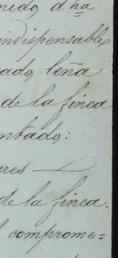 nido, dha
indispensable
ado, leña
de la finca
ntado:
res —
de la finca.
compromе=